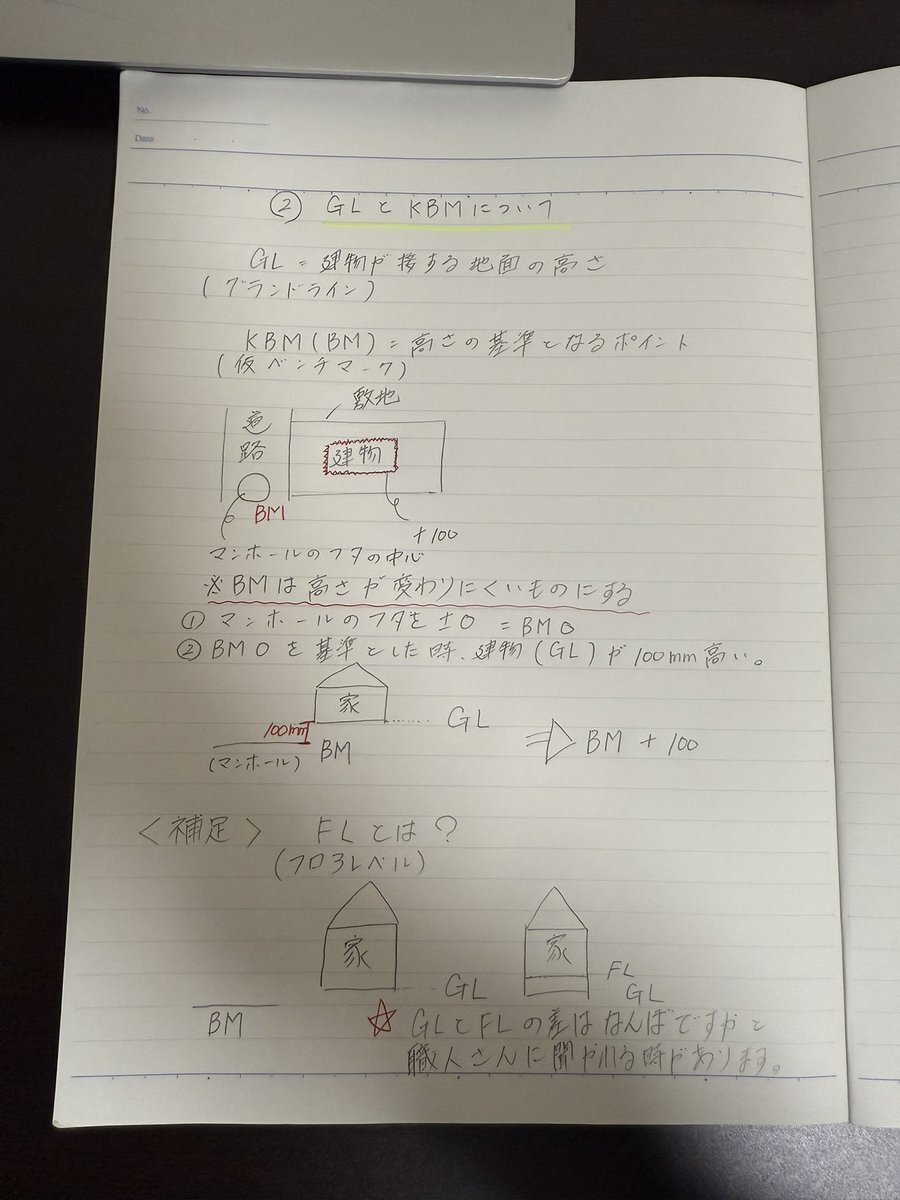 No.
Date
② GLとKBMについて
GL = 建物が接する地面の高さ
(グランドライン)
KBM(BM) = 高さの基準となるポイント
(仮ベンチマーク)
敷地
道路
建物
BM
+100
マンホールのフタの中心
※BMは高さが変わりにくいものにする
① マンホールのフタを±0 = BM0
② BM0を基準とした時、建物(GL)が100mm高い。
家
100mm
GL
BM
(マンホール)
⇒ BM + 100
<補足> FLとは?
(フロアレベル)
家
家
FL
GL
GL
BM
☆ GLとFLの差はなんぼですかと
職人さんに聞かれる時があります。